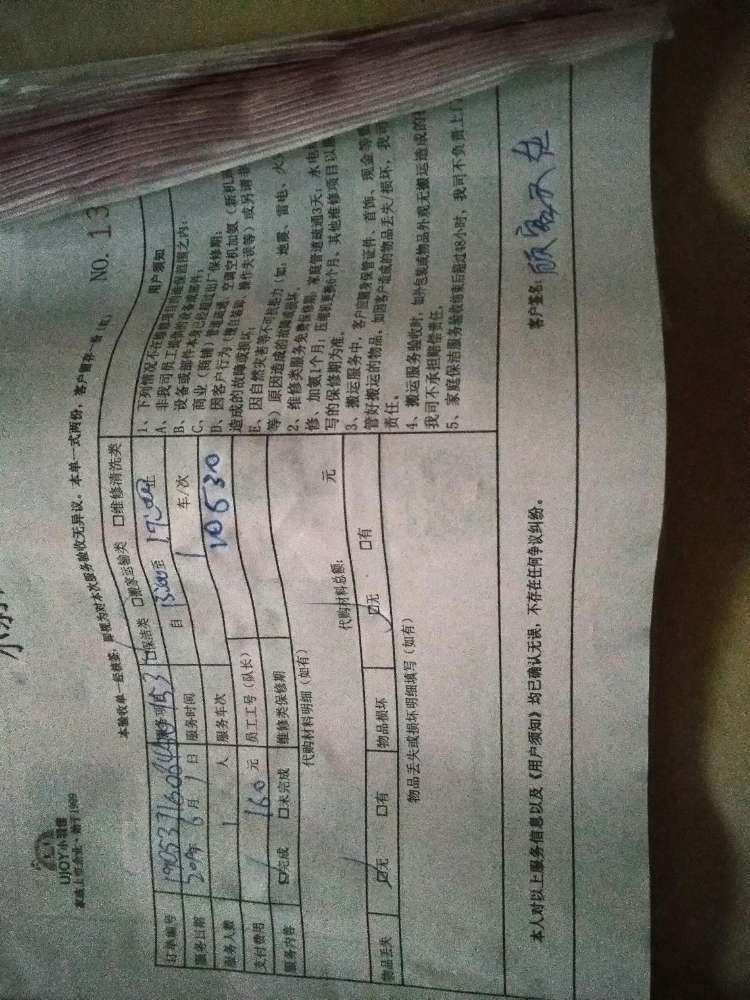 UJOY小哥帮
家庭上门企业·始于1999
本验收单一经核签，即视为对本次服务验收无异议。本单一式两份，客户留存一份（红）
NO. 13
订单编号
服务项目 ☑保洁类 □搬家运输类 □维修清洗类
服务日期 2019年6月1日 服务时间 自 15:00 至 17:00 止
服务人数 1 人 服务车次 1 车/次
支付费用 160 元 员工工号（队长） 10530
服务内容 ☑完成 □未完成 维修类保修期
代购材料明细（如有）
代购材料总额： 元
物品丢失 ☑无 □有 物品损坏 ☑无 □有
物品丢失或损坏明细填写（如有）
用户须知
1、下列情况不在维修项目的维保范围之内：
A、非我司员工提供的设备或部件；
B、设备或部件本身已经超过出厂保修期；
C、商业（商铺）管道疏通、空调空机加氨（新机
D、因客户行为（擅自装卸、操作失误等）或另请非
造成的故障或损坏；
E、因自然灾害等不可抗拒力（如：地震、雷电、火
等）原因造成的故障或损坏。
2、维修类服务免费保修期：家庭管道疏通3天；水电
修、加氨1个月；压缩机更换6个月，其他维修项目以
写的保修期为准。
3、搬运服务中，客户应随身保管证件、首饰、现金等
管好搬运的物品，如因客户造成的物品丢失/损坏，我司
责任。
4、搬运服务验收时，如外包装或物品外观无搬运造成的
我司不承担赔偿责任。
5、家庭保洁服务验收结束后超过48小时，我司不负责上门
本人对以上服务信息以及《用户须知》均已确认无误，不存在任何争议纠纷。
客户签名：顾客不在